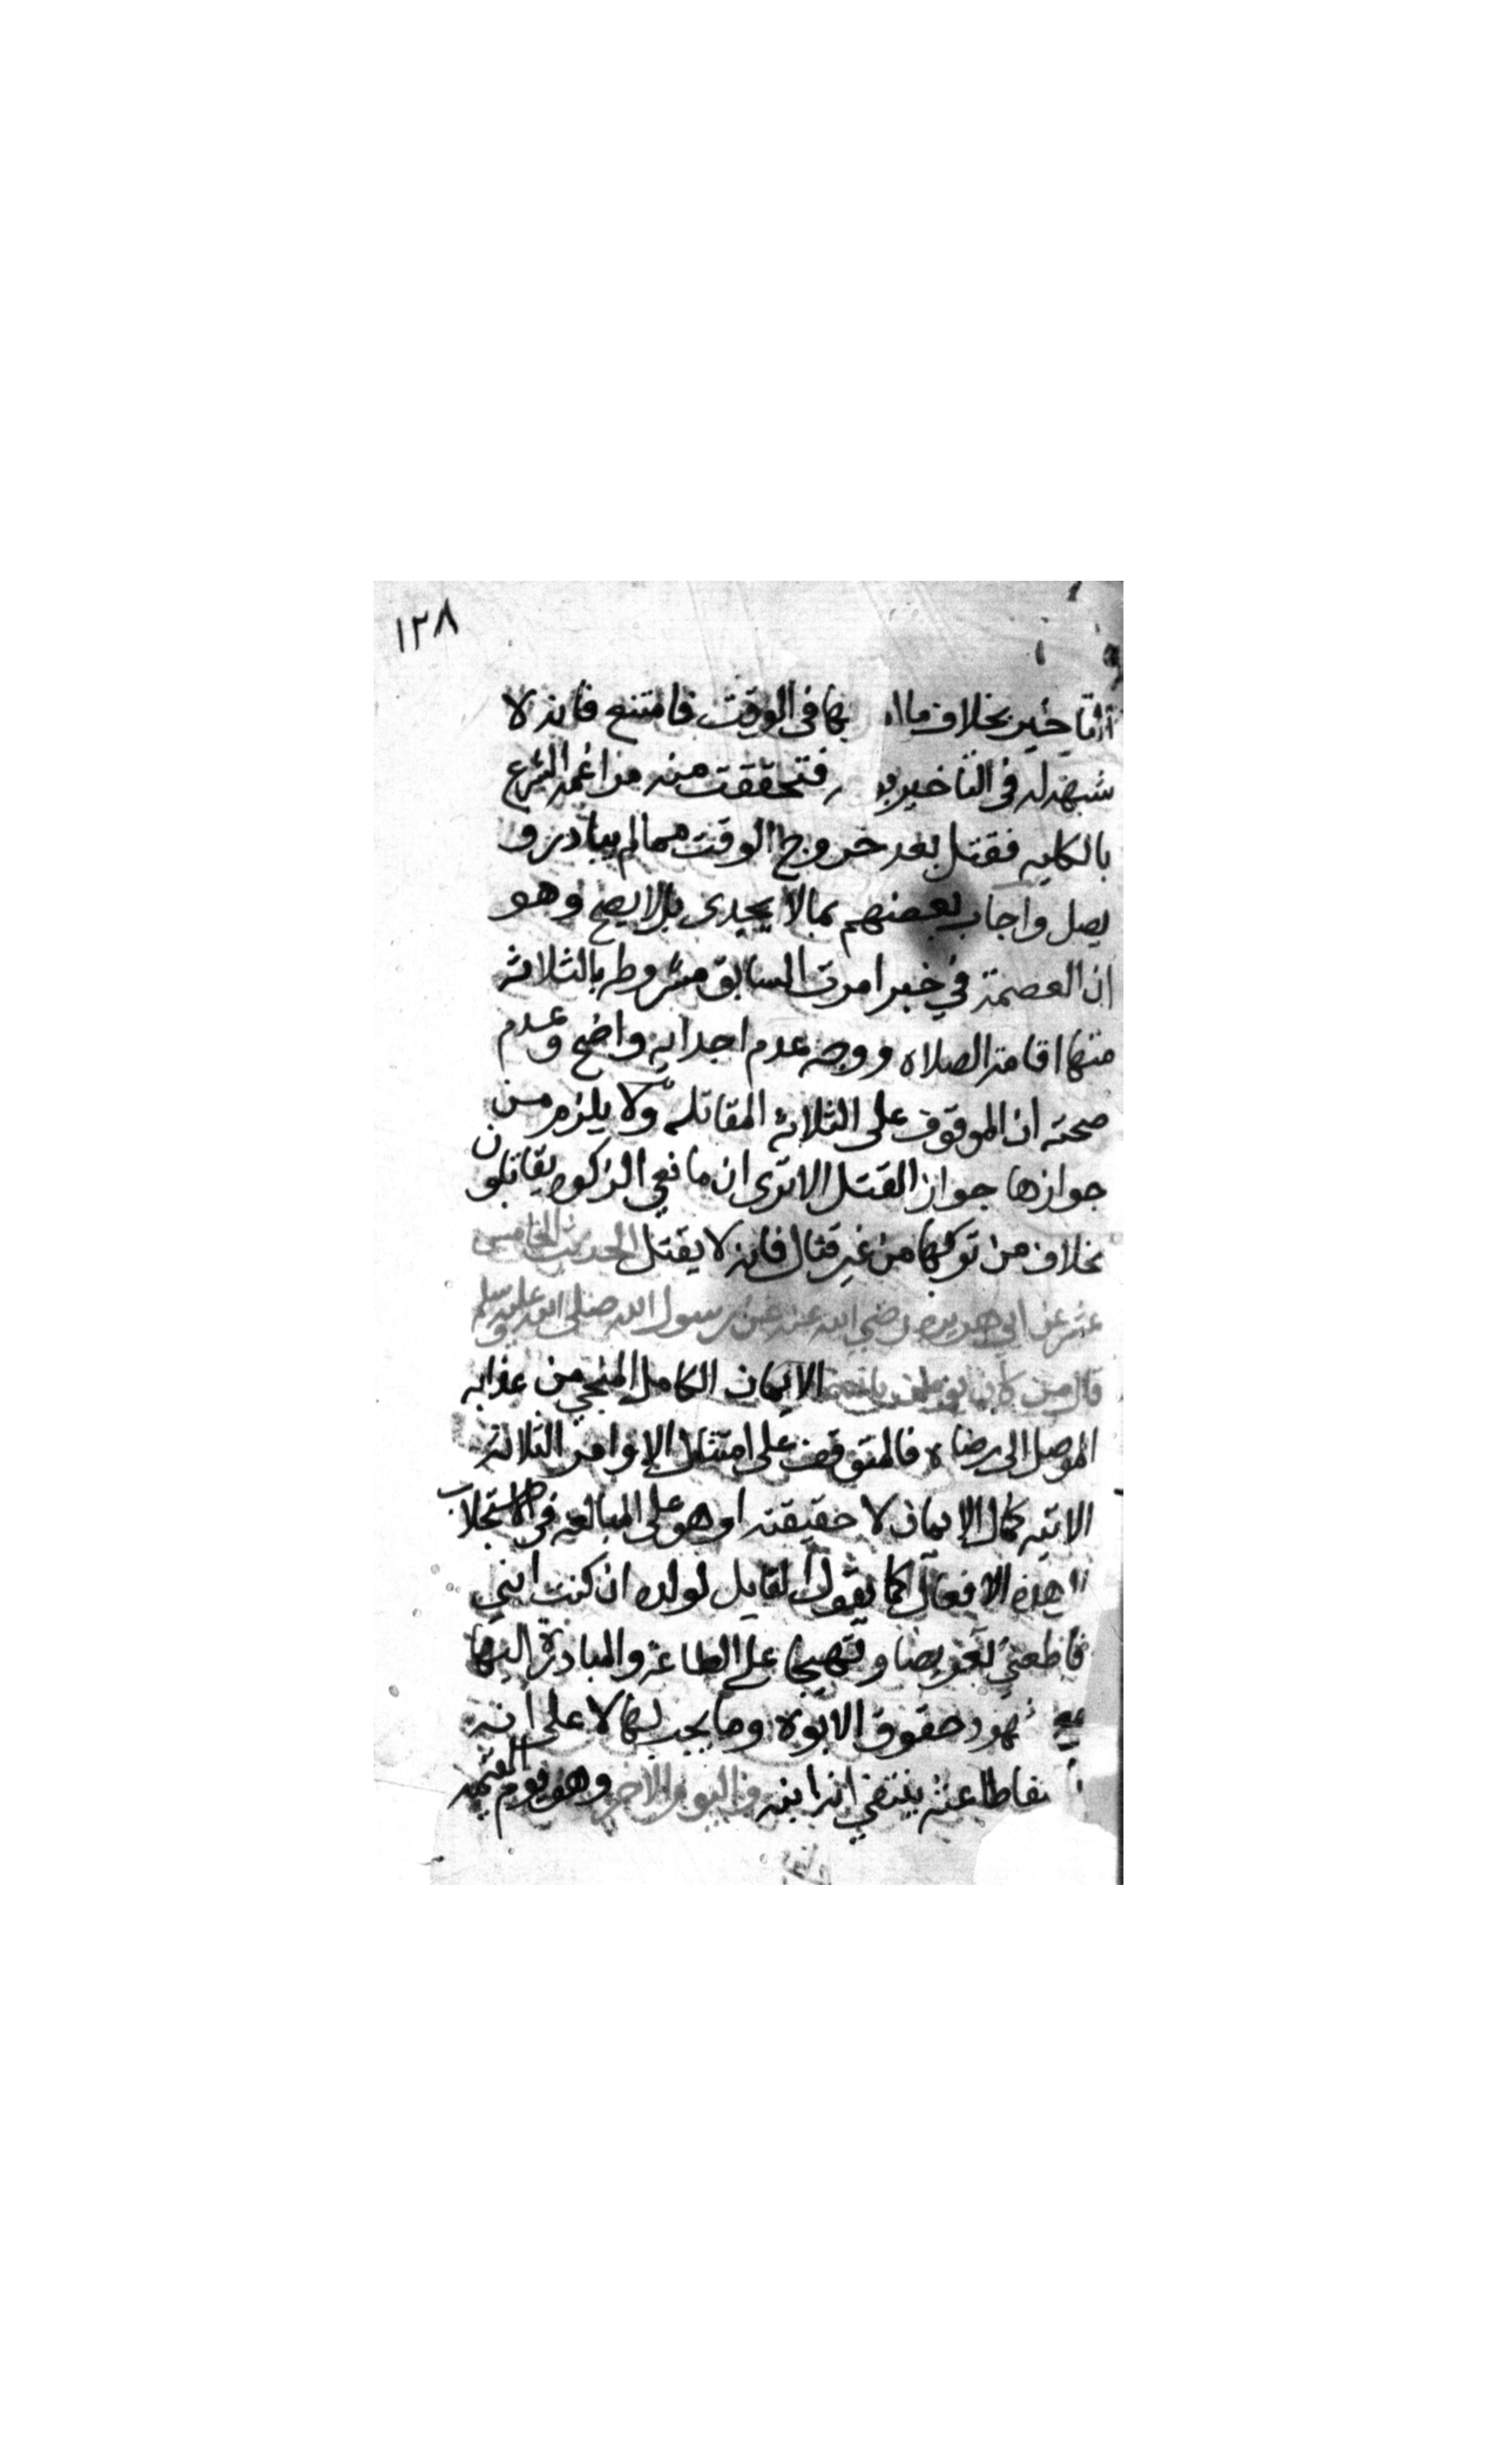 ١٢٨
بخلاف ما بها في الوقت فامتنع فانه لا
شبهة له في التاخير فتحققت منه مراغمة الشرع
بالكليه فقتل بعد خروج الوقت مما لم يبادر و
يصل واجاب بعضهم بما لا يجدى بل لا يصح وهو
ان العصمة في خبر امرت السابق مشروطه بالثلاثة
منها اقامة الصلاه ووجه عدم اجدايه واضح وعدم
صحته ان الموقوف على الثلاثة المقاتلة ولا يلزم من
جوازها جواز القتل الا ترى ان مانعي الزكوه يقاتلون
بخلاف من تركها من غير قتال فانه لا يقتل الحديث الخامس
عشر عن ابي هريره رضي الله عنه عن رسول الله صلى الله عليه وسلم
قال من كان يؤمن بالله الايمان الكامل المنجي من عذابه
الموصل الى رضاه فالمتوقف على امتثال الاوامر الثلاثة
الاتيه كمال الايمان لا حقيقته او هو على المبالغه في الاستجلاب
هذه الافعال كما يقول القايل لولده ان كنت ابني
فاطعني تحريضا وتهييجا على الطاعة والمبادرة اليها
مع شهود حقوق الابوة وما يجب لها لا على انه
بانتفا طاعته ينتفي انه ابنه واليوم الاخر وهو يوم القيمه